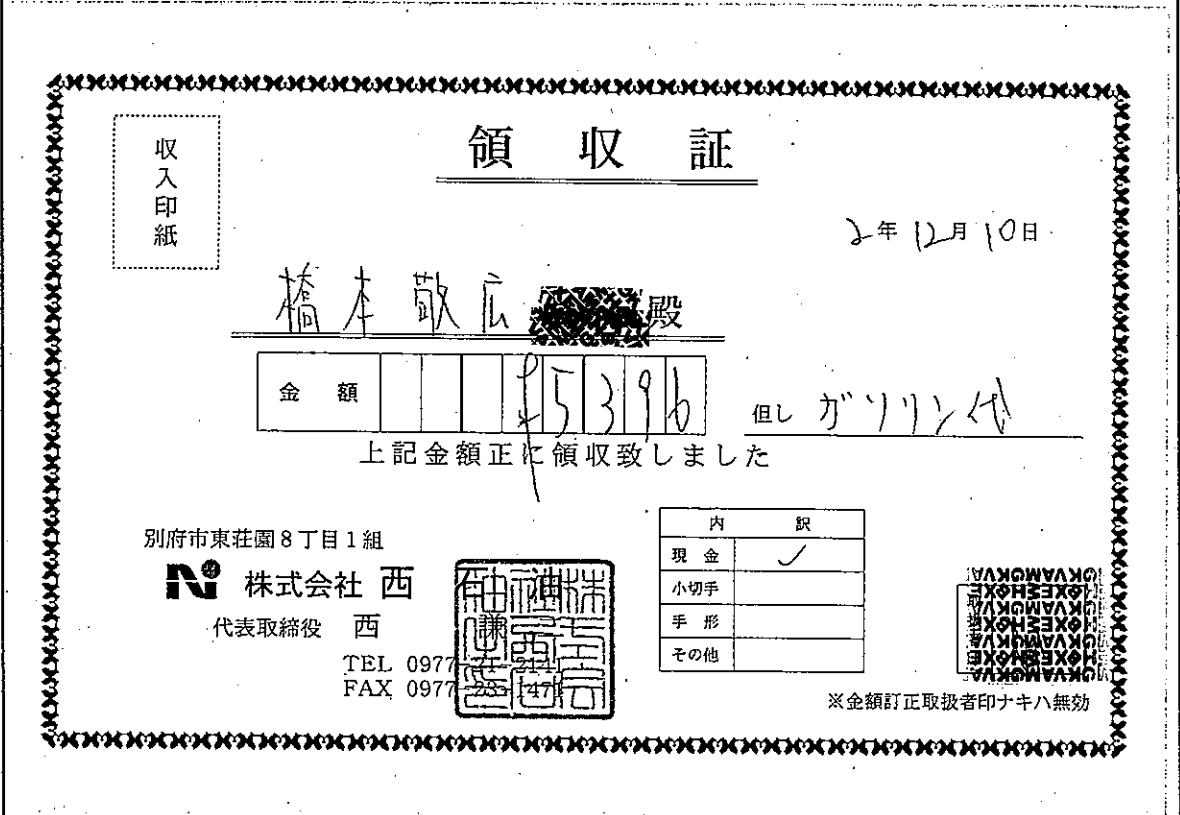 収入印紙
領収証
2年12月10日
橋本敬広 殿
金額 ¥5396
但し ガソリン代
上記金額正に領収致しました
別府市東荘園8丁目1組
株式会社 西石油
代表取締役 西 謙
TEL 0977-21-2141
FAX 0977-23-1471
内訳
現金 ✓
小切手
手形
その他
※金額訂正取扱者印ナキハ無効